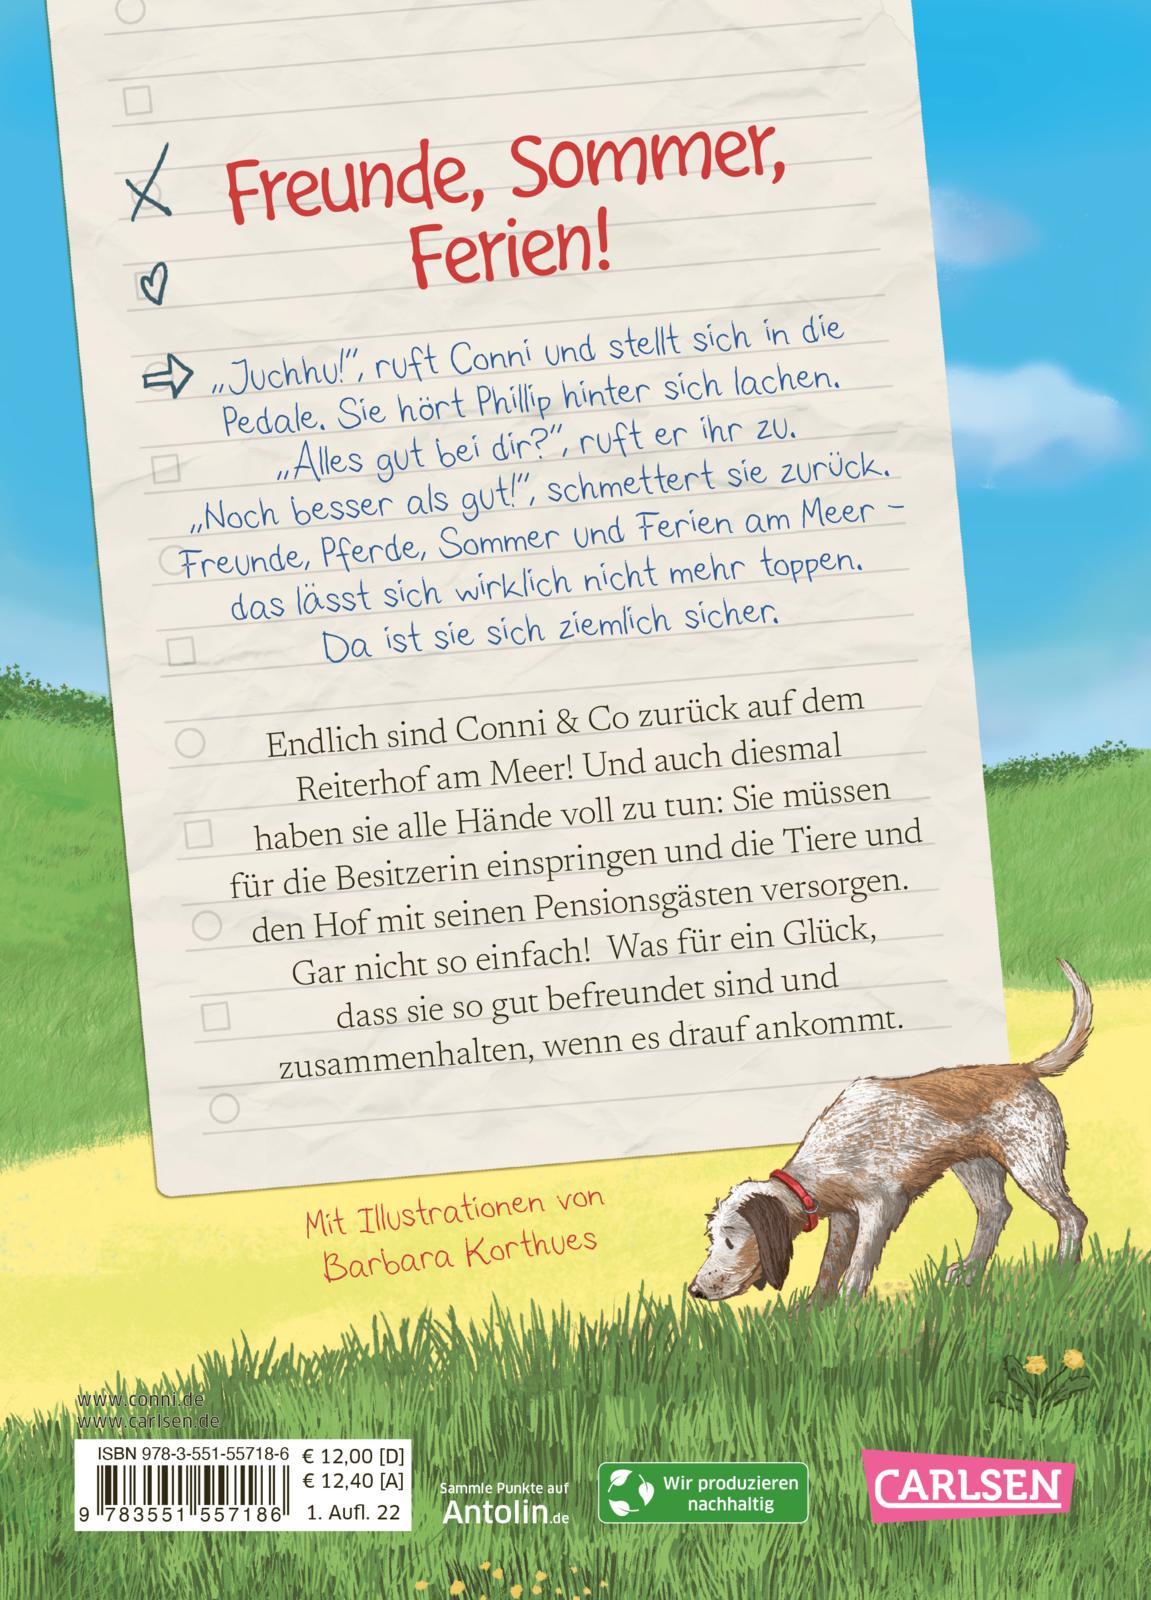 Freunde, Sommer,
Ferien!
„Juchhu!“, ruft Conni und stellt sich in die
Pedale. Sie hört Phillip hinter sich lachen.
„Alles gut bei dir?“, ruft er ihr zu.
„Noch besser als gut!“, schmettert sie zurück.
Freunde, Pferde, Sommer und Ferien am Meer –
das lässt sich wirklich nicht mehr toppen.
Da ist sie sich ziemlich sicher.
Endlich sind Conni & Co zurück auf dem
Reiterhof am Meer! Und auch diesmal
haben sie alle Hände voll zu tun: Sie müssen
für die Besitzerin einspringen und die Tiere und
den Hof mit seinen Pensionsgästen versorgen.
Gar nicht so einfach! Was für ein Glück,
dass sie so gut befreundet sind und
zusammenhalten, wenn es drauf ankommt.
Mit Illustrationen von
Barbara Korthues
www.conni.de
www.carlsen.de
ISBN 978-3-551-55718-6
€ 12,00 [D]
€ 12,40 [A]
1. Aufl. 22
9 783551 557186
Sammle Punkte auf
Antolin.de
Wir produzieren
nachhaltig
CARLSEN